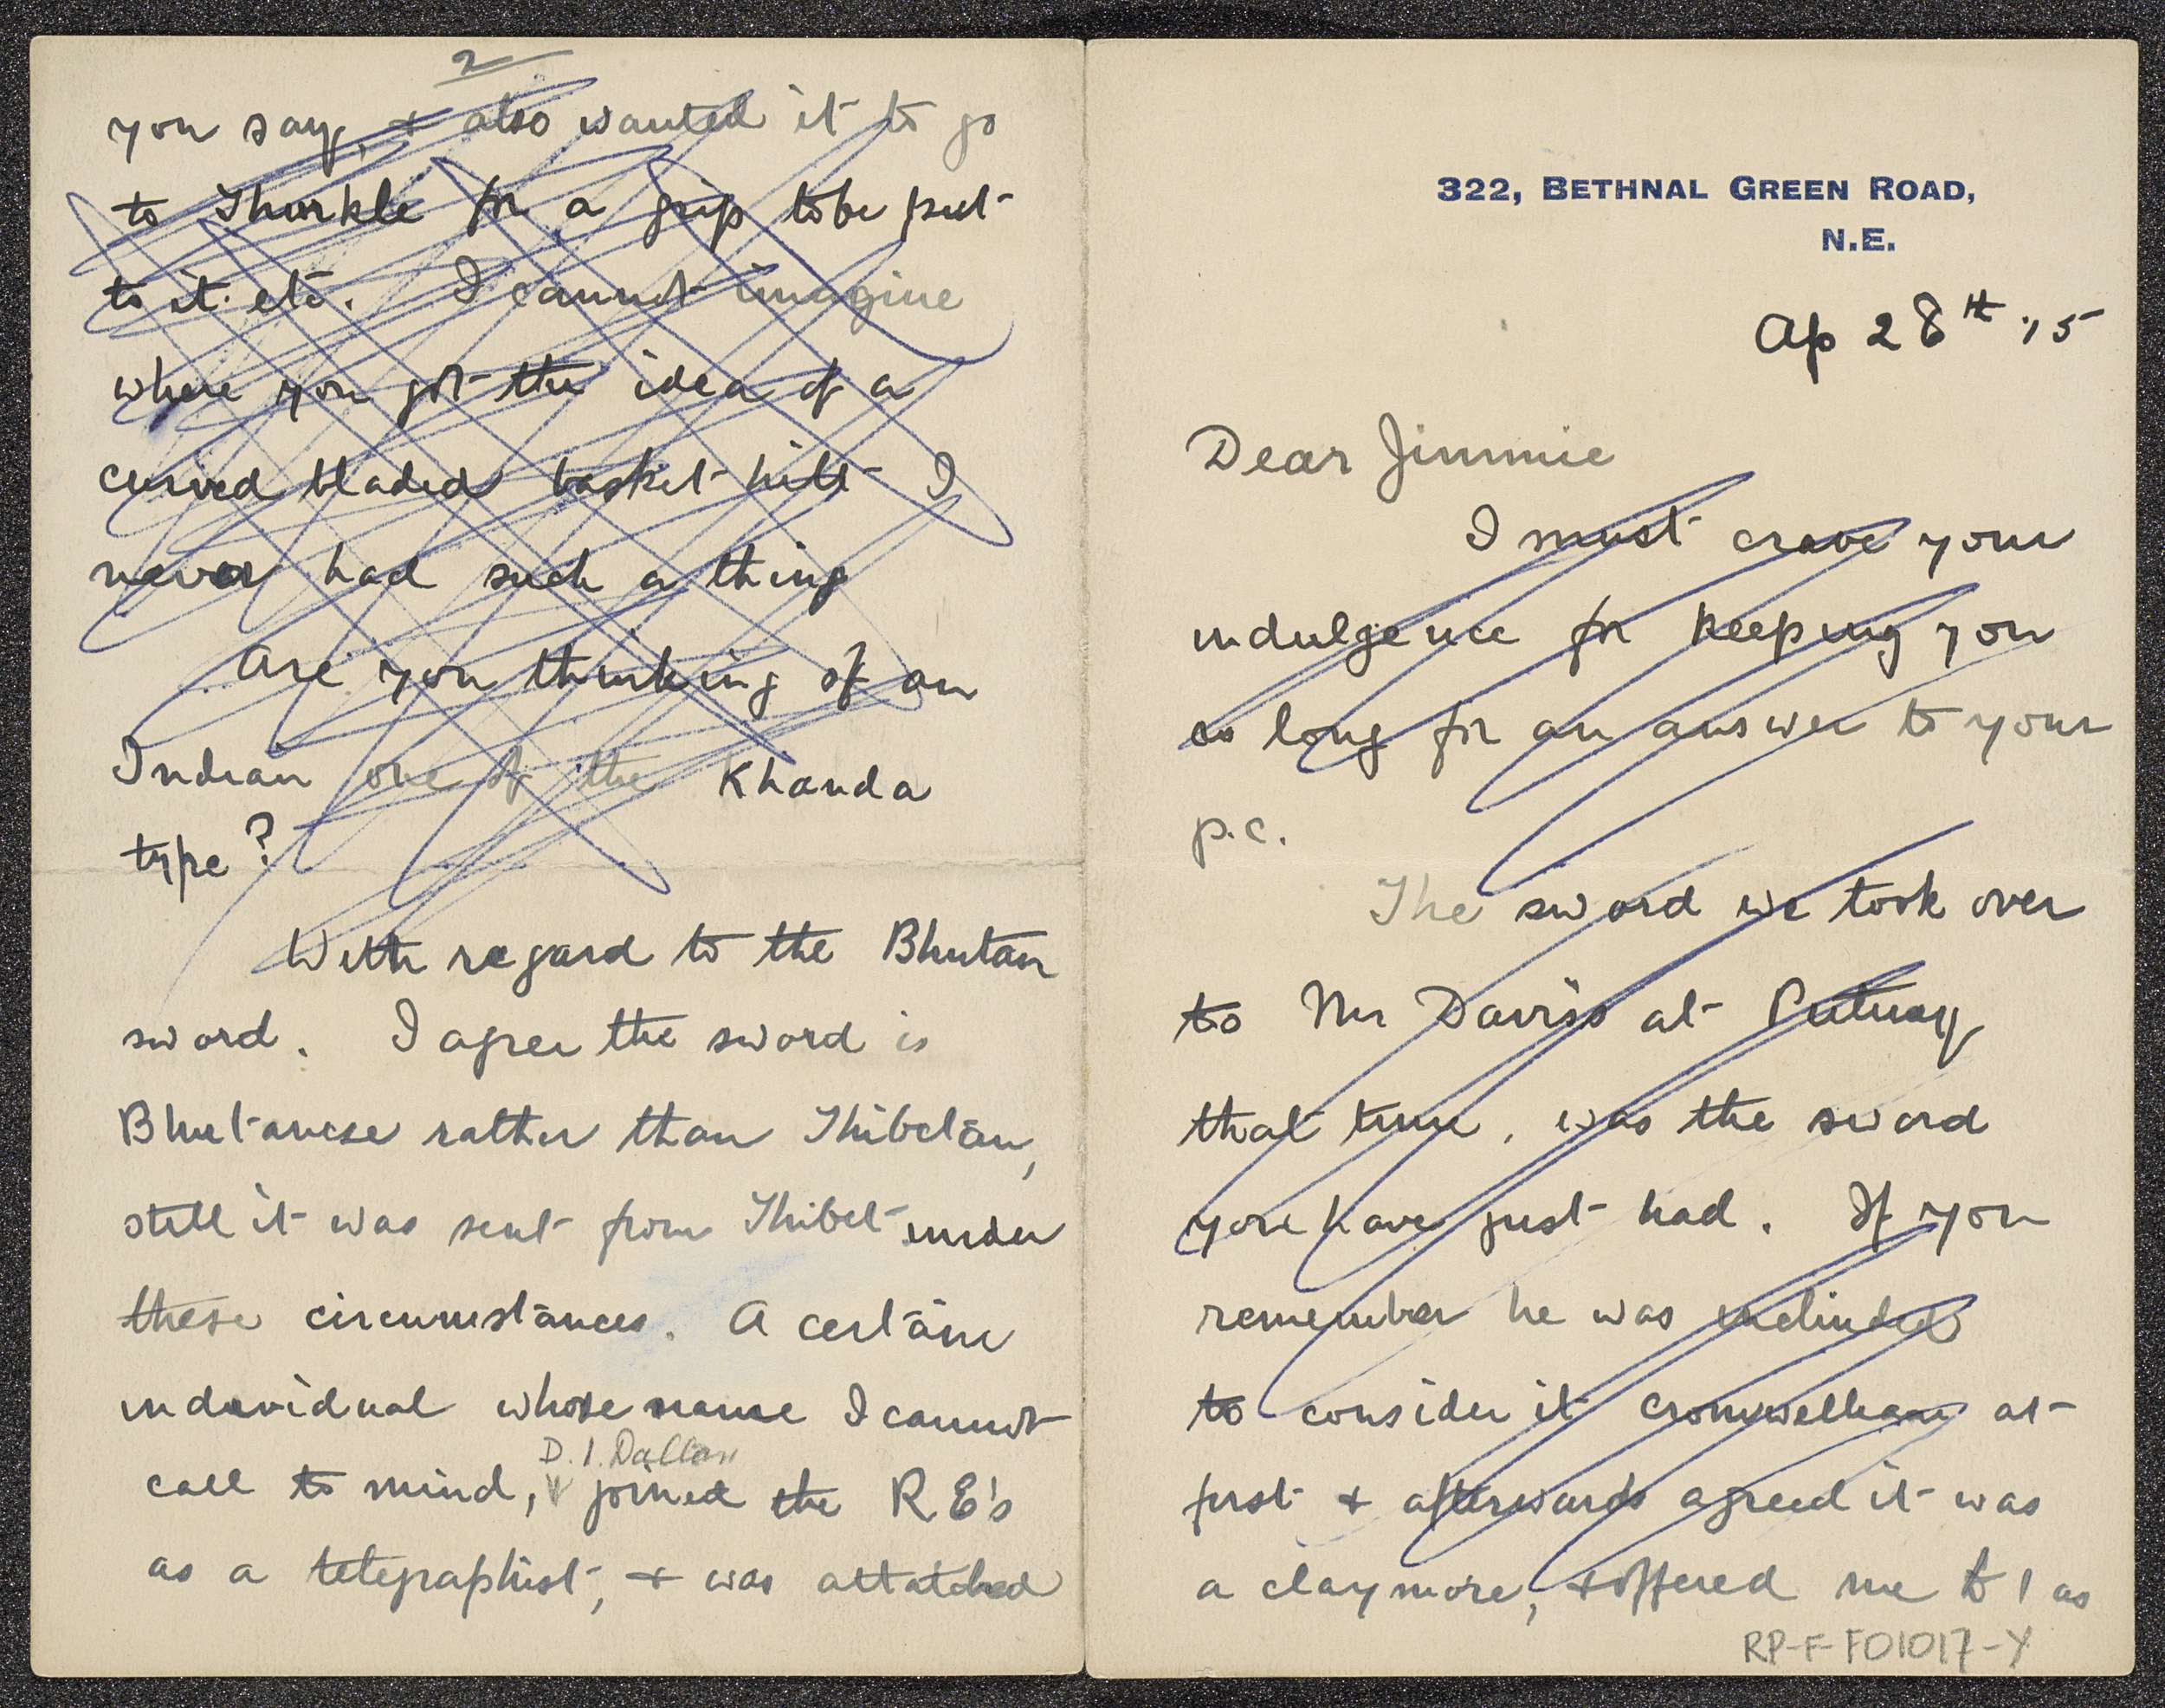 322, BETHNAL GREEN ROAD,
N.E.
Ap 28th '15
Dear Jimmie
I must crave your
indulgence for keeping you
so long for an answer to your
p.c.
The sword we took over
to Mr Daviss at Putney
that time, was the sword
you have just had. If you
remember he was inclinded
to consider it cromwelliean at
first & afterwards agreed it was
a claymore, & offered me £1 as
RP-F-F01017-Y
2
you say, & also wanted it to go
to Thurkle for a grip to be put
to it. etc. I cannot imagine
where you got the idea of a
curived bladed basket hilt I
never had such a thing
Are you thinking of an
Indian one of the Khanda
type?
With regard to the Bhutan
sword. I agree the sword is
Bhutanese rather than Thibetan,
still it was sent from Thibet under
these circumstances. A certain
individual whose name I cannot
D. I. Dallan
call to mind, joined the R.E's
as a telegraphist, & was attatched